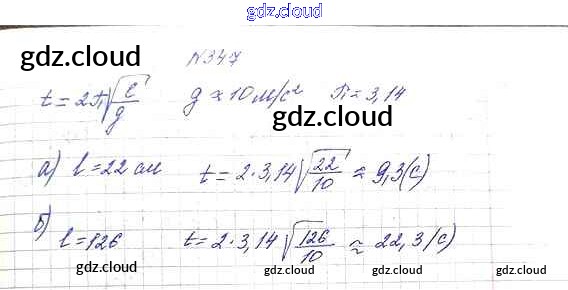 gdz.cloud
gdz.cloud
№347
t = 2π√(l/g) g ≈ 10 м/с² π = 3,14
gdz.cloud
а) l = 22 см t = 2·3,14√(22/10) ≈ 9,3(с)
б) l = 126 t = 2·3,14√(126/10) ≈ 22,3(с)
gdz.cloud
gdz.cloud gdz.cloud gdz.cloud